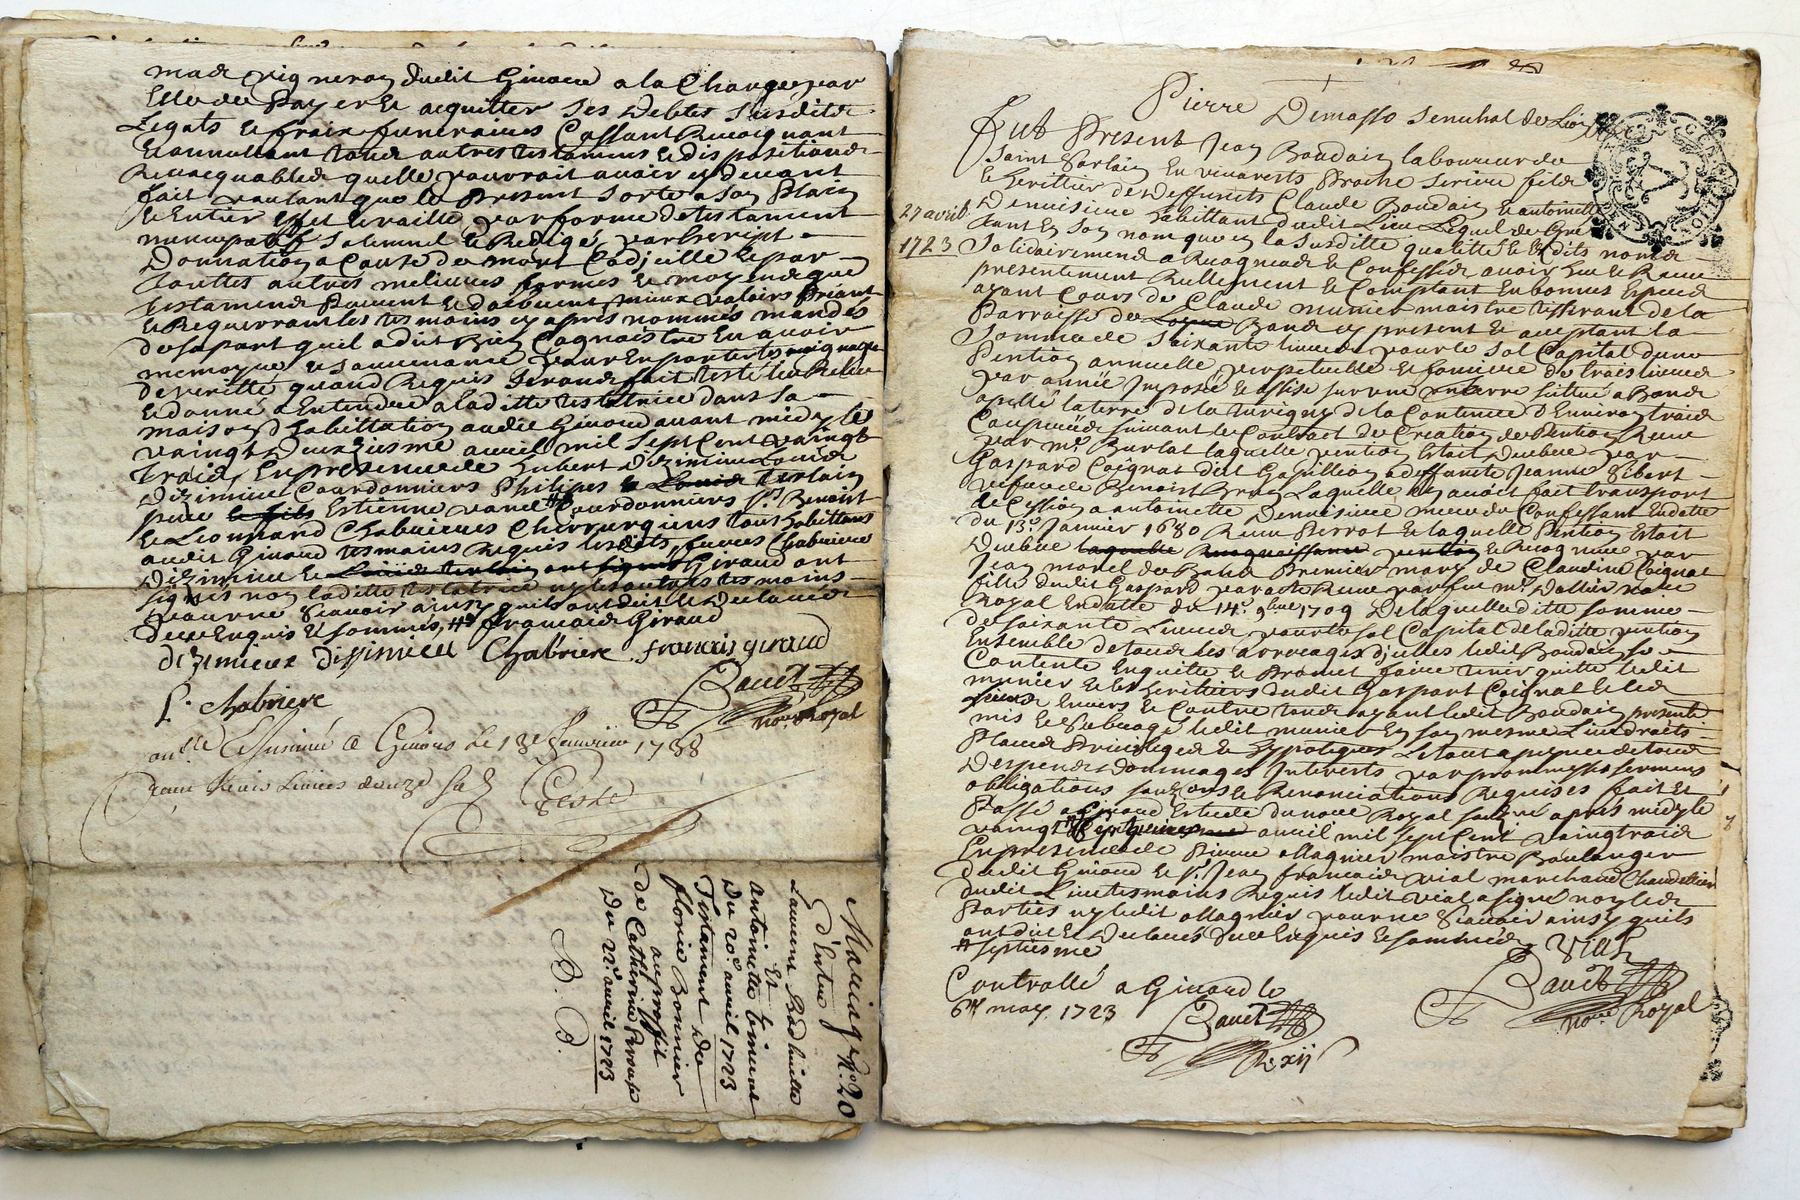 made vigneron dudit Givord a la Charge par
Elle de Payer et acquitter ses debtes susdits
Legats et fraix funeraires Cassant Revoquant
et annullant tous autres testaments et dispositions
Revocquables quelle pourroit avoir cy devant
fait voulant que le present sorte a son Plain
et Entier effet et vaille par forme de testament
nuncupatif solemnel et Redigé par escript
Donnation a Cause de mort Codicille et par
toutes autres melieures formes et moyends que
testaments peuvent et doibvent mieux valoirs Priant
et Requerrant les tesmoins cy apres nommés mandés
de sa part quil a dit Bien Cognoistre En avoir
memoyre et souvenance pour En porter tesmoignage
de veritté quand Requis seronts fait testé leu Releu
et donné a Entendre a laditte testatrice dans sa
maison d'habittation audit Givord avant midy le
vaingt deuxiesme avril mil sept Cent vaingt
trois En presence de hubert Dizimieu Louis
Dizimieu Courdonniers Philipes
Estienne Courdonniers sr. Benoist
et Leonnard Chabrieres Chirurgiens tous habittans
audit Givord tesmoins Requis lesdits Chabriere
Dizimieu et Giraud ont
signés non laditte testatrice ny les autres tesmoins
pour ne scavoir ainsy quils ont dit et declarés
de ce Enquis et sommés, # francois Giraud
dizimieux Dissimieu Chabriere francois giraud
P. chabriere
Bauet
nore Royal
Insinué a Givors le 18e Janvier 1788
Livres douze sols
Mariage No. 20
d'Entre
Laurent
Et
Antoinette
Du 20e. avril 1723
Testament de
florie Bonnier
au proffit
de Catherine
Du 22e. avril 1723
Pierre Demasso senechal de Lion
27 avril
1723
Fut Present Jean Boudain laboureur de
Saint en vivarests Proche seriere fils
et herittier de deffuncts Claude Boudain et antoinette
Denuisieux habittant dudit Lieu Lequel de Gré
tant En son nom que en la susditte qualitté et Esdits noms
solidairement a Recognus et Confessés avoir heu et Receu
presentement Rellement et Comptant En bonnes Especes
ayant Cours de Claude munier maistre tisserant de la
Parroisse de Bans cy present et aceptant la
somme de soixante livres pour le sol Capital dune
Pention annuelle perpetuelle et fonciere de trois livres
par année Imposé et assise sur une terre sittué a Bans
apellé la terre de la de la Contenue d'Environ trois
Couperées suivant le Contract de Creation de Pention Receu
par me. Burlat laquelle pention Estoit deubue par
Gaspard Coignat dit a deffuncte Jeanne Gibert
vefve de Benoist Brun Laquelle En avoit fait transport
de Cession a antoinette Denuisieux mere du Confessant En datte
du 13e. Janvier 1680 Receu Perrot et laquelle Pention Estoit
Deubue laquelle Recognoissance pention et Recognue par
Jean morel de Bans Premier mary de Claudine Coignat
fille dudit Gaspard par acte Receu par feu me. Dallier nore
Royal En datte du 14e. 9bre 1709 De laquelle ditte somme
de soixante Livres pour le sol Capital de laditte pention
Ensemble de tous les arreages d'icelles ledit Boudain se
Contente Enquitte et Promet faire tenir quitte ledit
munier et les herittiers dudit Gaspart Coignat et les
siens Envers et Contre tous ayant ledit Boudain presente
mis et subrogé ledit munier En son mesme Lieu droits
Places Privileges et hypoteques Le tout a peyne de tous
Despends dommages Interests par promesses serments
obligations soubmissions et Renonciations Requises fait et
Passé a Givord Estude du nore Royal soubné apres midy le
vaingt # avril mil sept Cent vaingtrois
En presence de Pierre Magnier maistre Boulanger
dudit Givord et sr. Jean francois vial marchand Chandellier
dudit Lieu tesmoins Requis ledit vial a signé non les
Parties ny ledit Magnier pour ne scavoir ainsy quils
ont dit et declarés de ce Enquis et sommés
# septiesme
Viall
Controllé a Givord le
6e may 1723
Bauet
nore Royal
Bauet
R. xij s